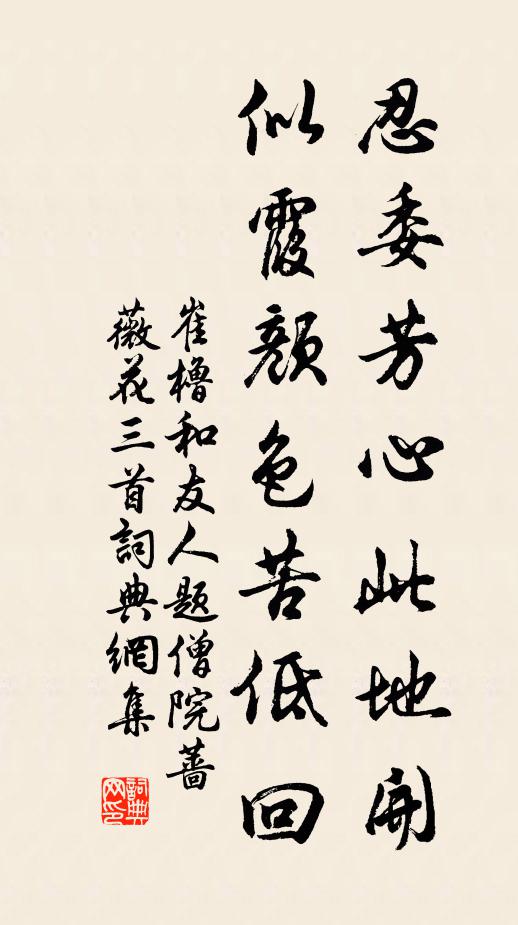 忍委芳心此地開
似霞顏色苦低回
崔櫓和友人題僧院薔
薇花三首詞典網集
詞典
网印